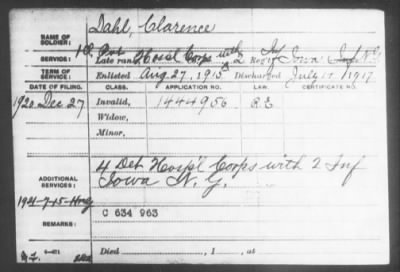 Dahl, Clarence
NAME OF
SOLDIER:
SERVICE:
Late rank, Hosl Corps with 2 Reg't Inf Iowa
TERM OF
SERVICE:
Enlisted Aug 27, 1915 Discharged July 17, 1917
DATE OF FILING. CLASS. APPLICATION NO. LAW. CERTIFICATE NO.
1920 Dec 27 Invalid, 1444956
Widow,
Minor,
ADDITIONAL
SERVICES:
4 Det Hosp'l Corps with 2 Inf
Iowa N. G.
REMARKS:
C 634 963
Died , 1 , at